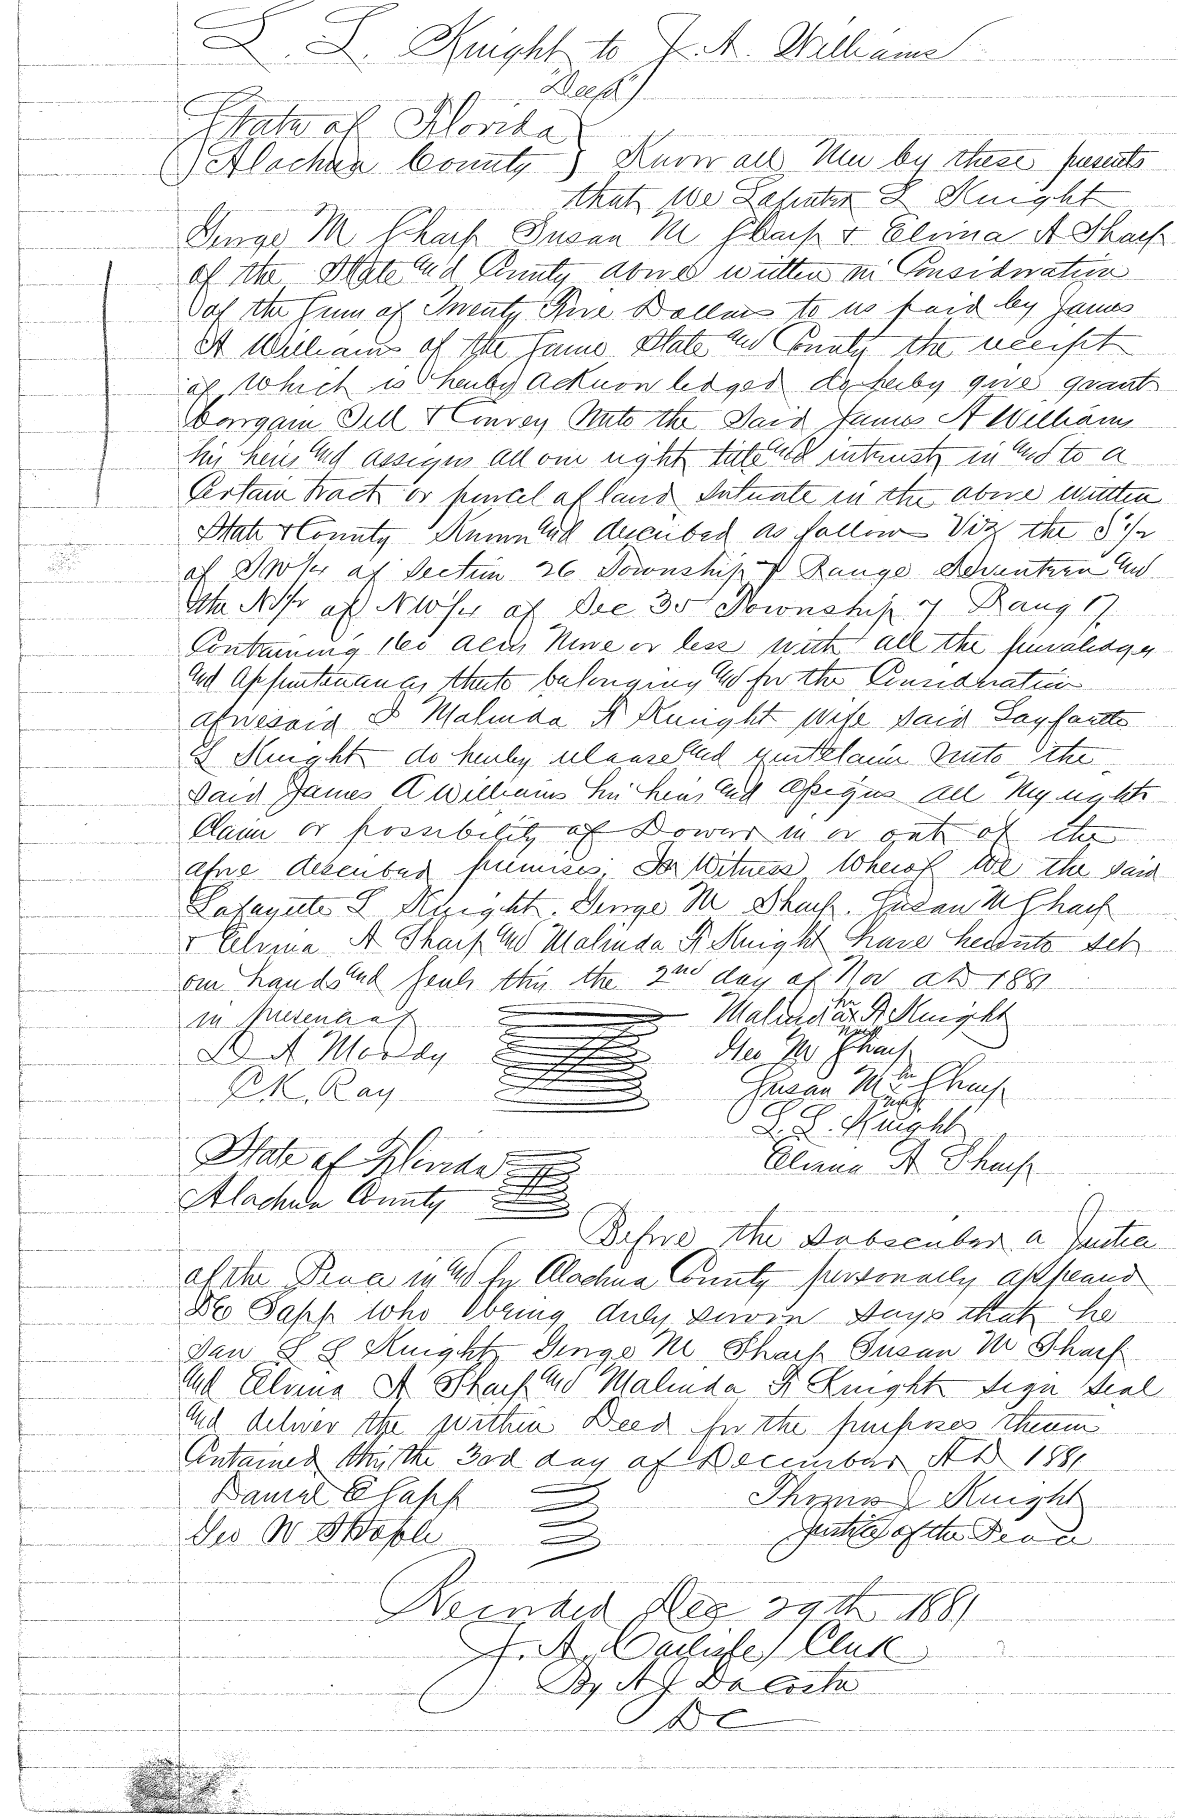 L. L. Knight to J. A. Williams
"Deed"
State of Florida
Alachua County } Know all Men by these presents
that we Lafayette L Knight
George M Sharp Susan M Sharp & Elvina A Sharp
of the State and County above written in Consideration
of the Sum of Twenty Five Dollars to us paid by James
A Williams of the Same State and County the receipt
of which is hereby acknowledged do heby give grant
bargain Sell & Convey Unto the Said James A Williams
his heirs and assigns all our right title and intrust in and to a
Certain tract or parcel of land Situate in the above written
State & County Known and described as follow Viz the S 1/2
of SW 1/4 of Section 26 Township 7 Range Seventeen and
the N 1/2 of NW 1/4 of Sec 35 Township 7 Rang 17
Containing 160 acres More or less with all the privaledges
and appurtenances theto belonging and for the Consideration
aforesaid I Malinda A Knight wife said Layfaette
L Knight do hereby release and quitclaim Unto the
said James A Williams his heirs and assigns all My right
Claim or possibility of Dower in or out of the
afore described premises. In Witness Wherof We the said
Lafayette L Knight. George M Sharp. Susan M Sharp
& Elvina A Sharp and Malinda A Knight have hereunto set
our hands and Seals this the 2nd day of Nov AD 1881
in presence of Malinda her x mark A Knight
D A Moody Geo M Sharp
C. K. Ray Susan M her x mark Sharp
L. L. Knight
State of Florida Elvina A Sharp
Alachua County
Before the Subscriber a Justice
of the Peace in and for Alachua County personally appeared
D E Sapp who being duly sworn says that he
saw L L Knight George M Sharp Susan M Sharp
and Elvina A Sharp and Malinda A Knight sign seal
and deliver the within Deed for the purposes therein
Contained this the 3rd day of December AD 1881
Daniel E Sapp Thomas J Knight
Geo W Justice of the Peace
Recorded Dec 29th 1881
J. A. Carlisle Clerk
By A J DaCosta
DC